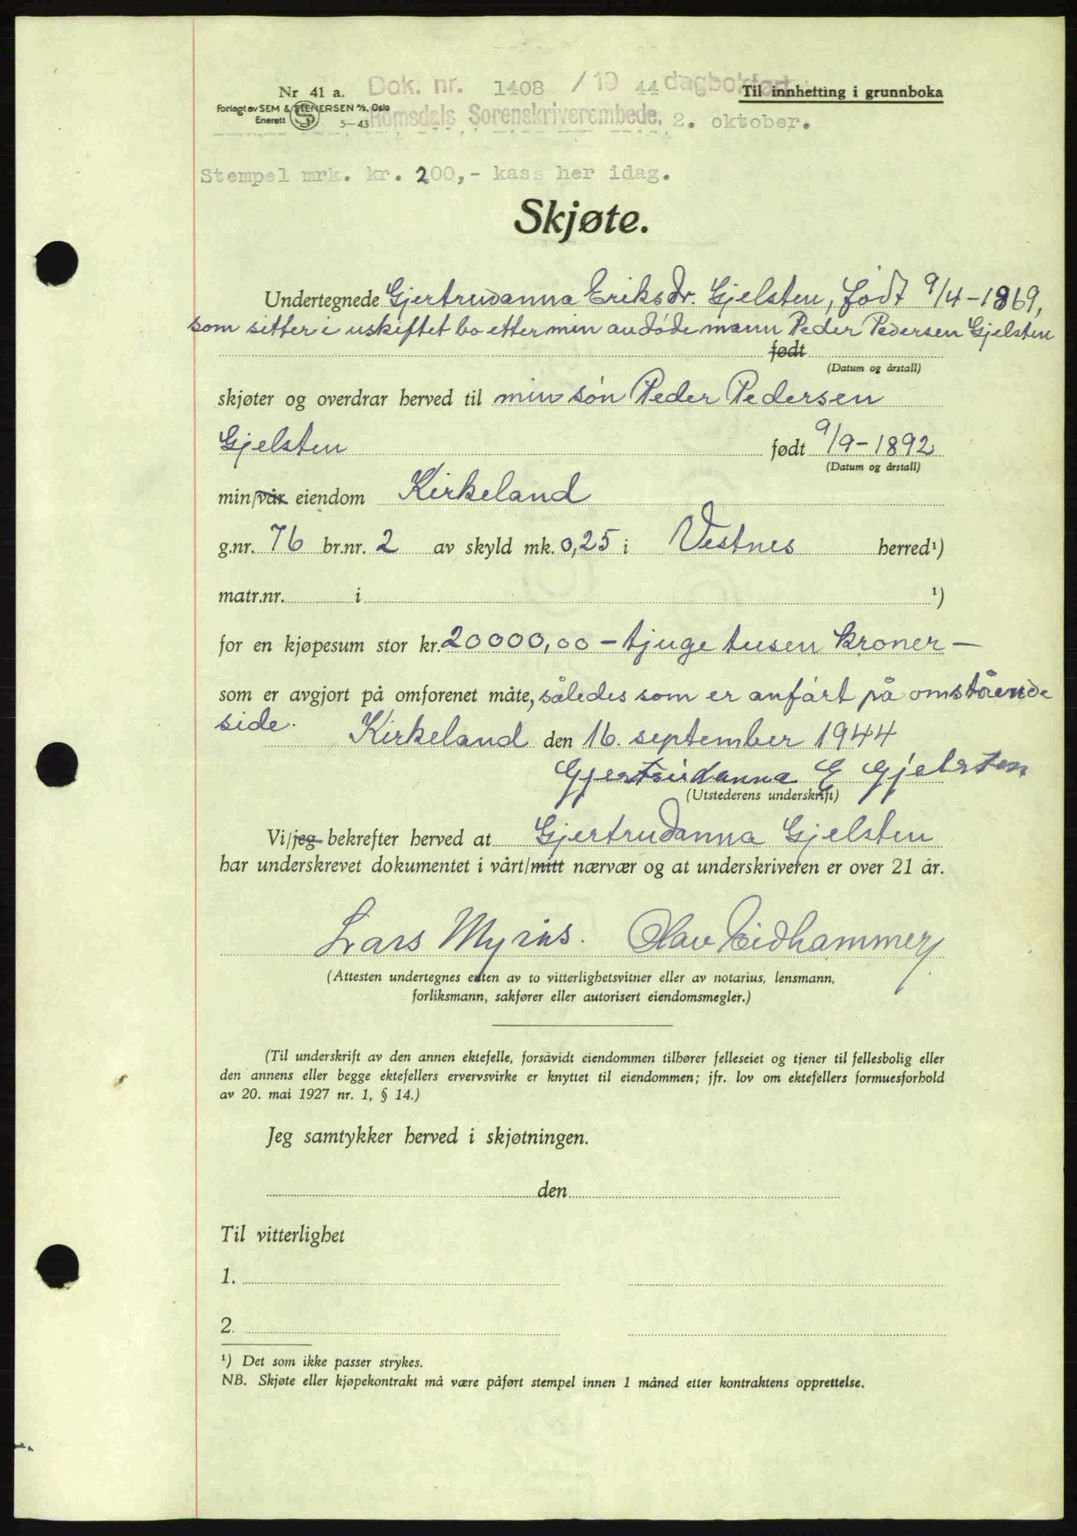 Nr 41 a. Dok. nr. 1408 /19 44 dagbokført Til innhefting i grunnboka
Forlagt av SEM & STENERSEN A/S, Oslo
Enerett 5-43 Romsdals Sorenskriverembede, 2. oktober.
Stempel mrk. kr. 200,- kass her idag.
Skjøte.
Undertegnede Gjertrudanna Eriksdr. Gjelsten, født 9/4-1869,
som sitter i uskiftet bo etter min avdøde mann Peder Pedersen Gjelsten
født
(Datum og årstall)
skjøter og overdrar herved til min søn Peder Pedersen
Gjelsten født 9/9-1892
(Datum og årstall)
min/vår eiendom Kirkeland
g.nr. 76 br.nr. 2 av skyld mk. 0,25 i Vestnes herred¹)
matr.nr. i ¹)
for en kjøpesum stor kr. 20000,00 - tjuge tusen kroner -
som er avgjort på omforenet måte, således som er anført på omstående
side.
Kirkeland den 16. september 1944
Gjertrudanna E Gjelsten
(Utstederens underskrift)
Vi/jeg bekrefter herved at Gjertrudanna Gjelsten
har underskrevet dokumentet i vårt/mitt nærvær og at underskriveren er over 21 år.
Lars Myrus. Olav Eidhammer
(Attesten undertegnes enten av to vitterlighetsvitner eller av notarius, lensmann,
forliksmann, sakfører eller autorisert eiendomsmegler.)
(Til underskrift av den annen ektefelle, forsåvidt eiendommen tilhører felleseiet og tjener til fellesbolig eller
den annens eller begge ektefellers ervervsvirke er knyttet til eiendommen; jfr. lov om ektefellers formuesforhold
av 20. mai 1927 nr. 1, § 14.)
Jeg samtykker herved i skjøtningen.
den
Til vitterlighet
1.
2.
¹) Det som ikke passer strykes.
NB. Skjøte eller kjøpekontrakt må være påført stempel innen 1 måned etter kontraktens opprettelse.